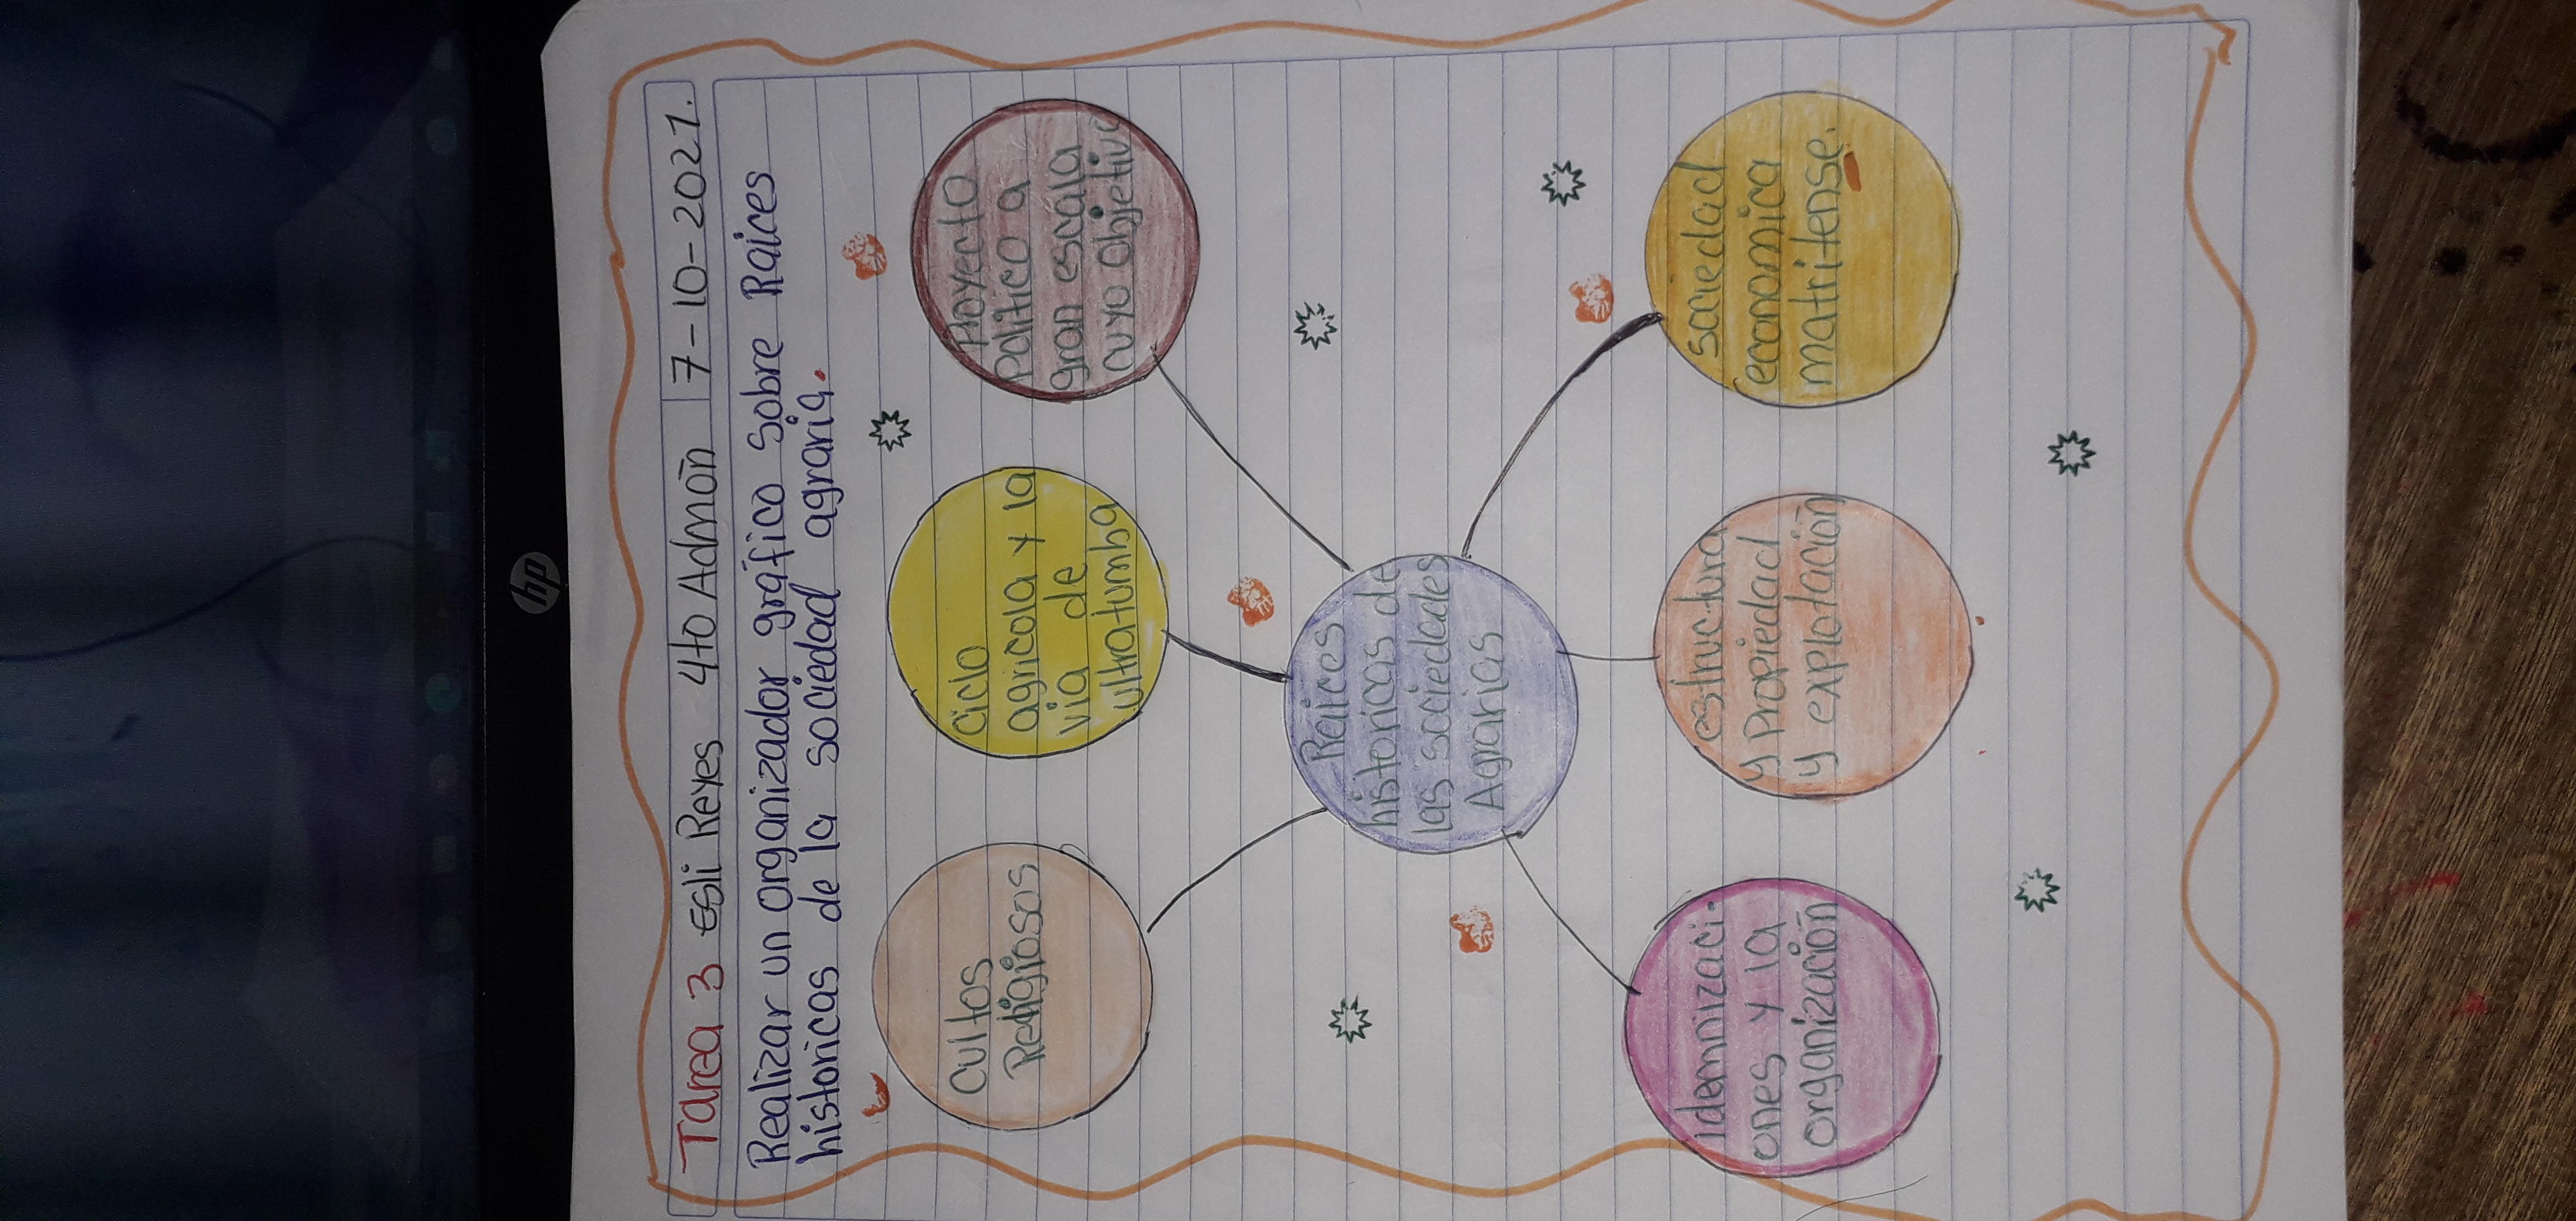 Tarea 3 Esli Reyes 4to Admón 7-10-2021.
Realizar un organizador gráfico sobre Raices
historicas de la sociedad agraria.
cultos
Religiosos
ciclo
agricola y la
via de
ultratumba
Proyecto
Politico a
gran escala
cuyo Objetivo
Raices
historicas de
las sociedades
Agrarias
idemnizaci-
ones y la
organización
estructura
y Propiedad
y explotación
sociedad
economica
matritense.
hp